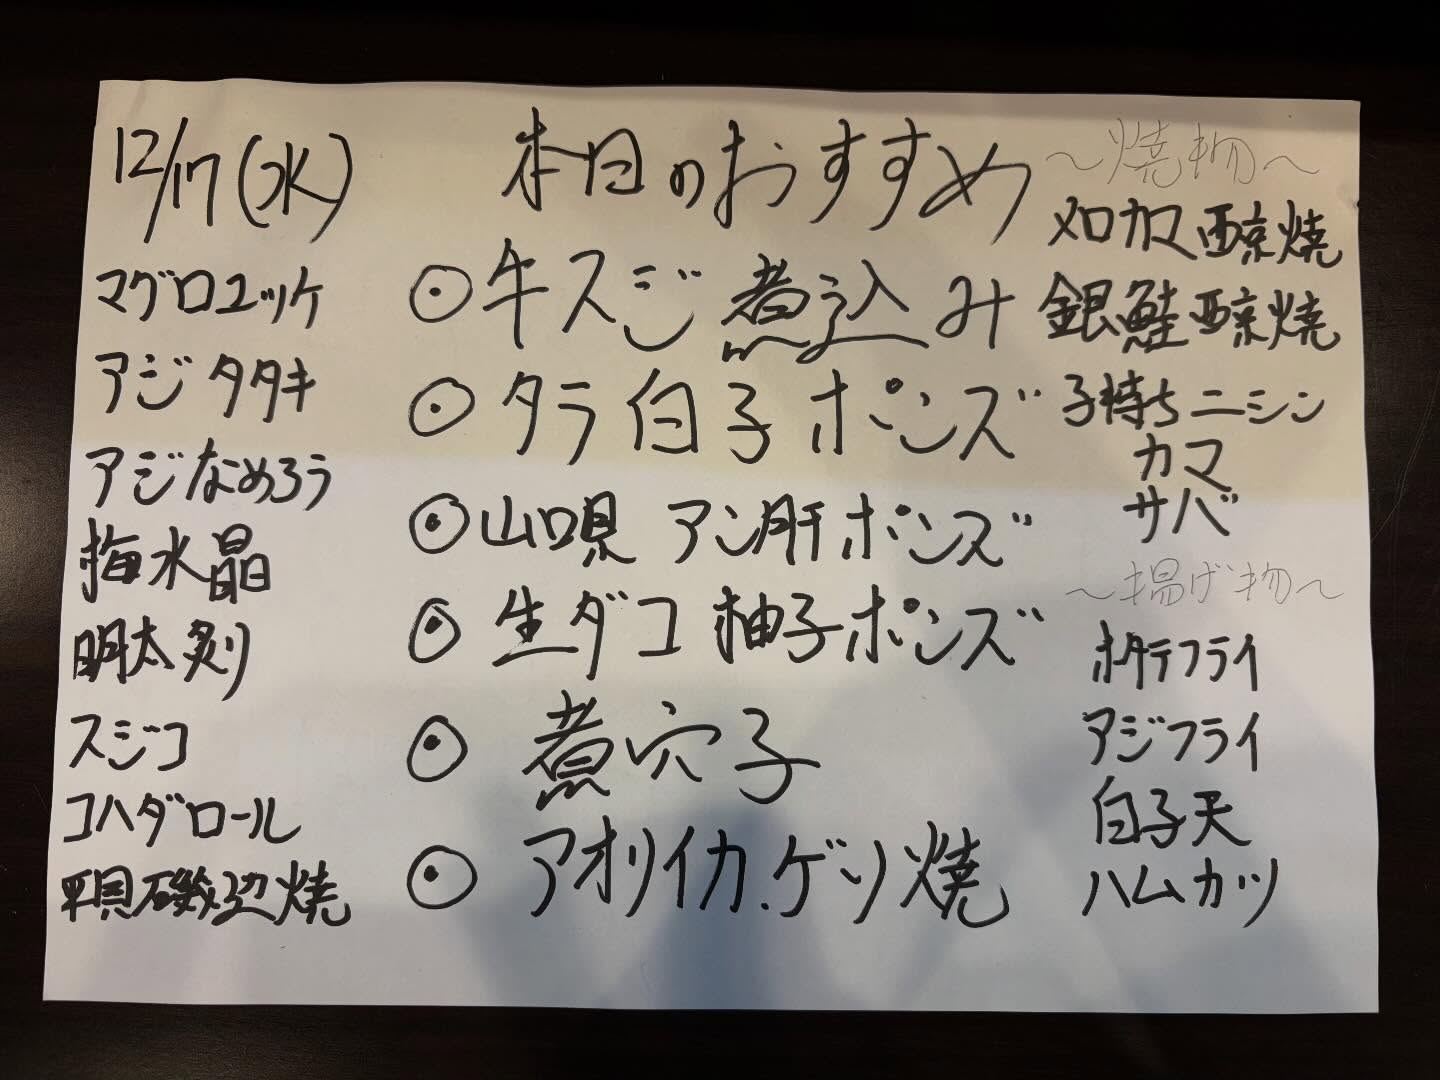 12/17(水)
マグロユッケ
アジタタキ
アジなめろう
梅水晶
明太炙り
スジコ
コハダロール
平貝磯辺焼
本日のおすすめ
◉牛スジ煮込み
◉タラ白子ポンズ
◉山口県 アン肝ポンズ
◉生ダコ柚子ポンズ
◉煮穴子
◉アオリイカ.ゲソ焼
〜焼物〜
メロカマ西京焼
銀鮭西京焼
子持ちニシン
カマ
サバ
〜揚げ物〜
ホタテフライ
アジフライ
白子天
ハムカツ